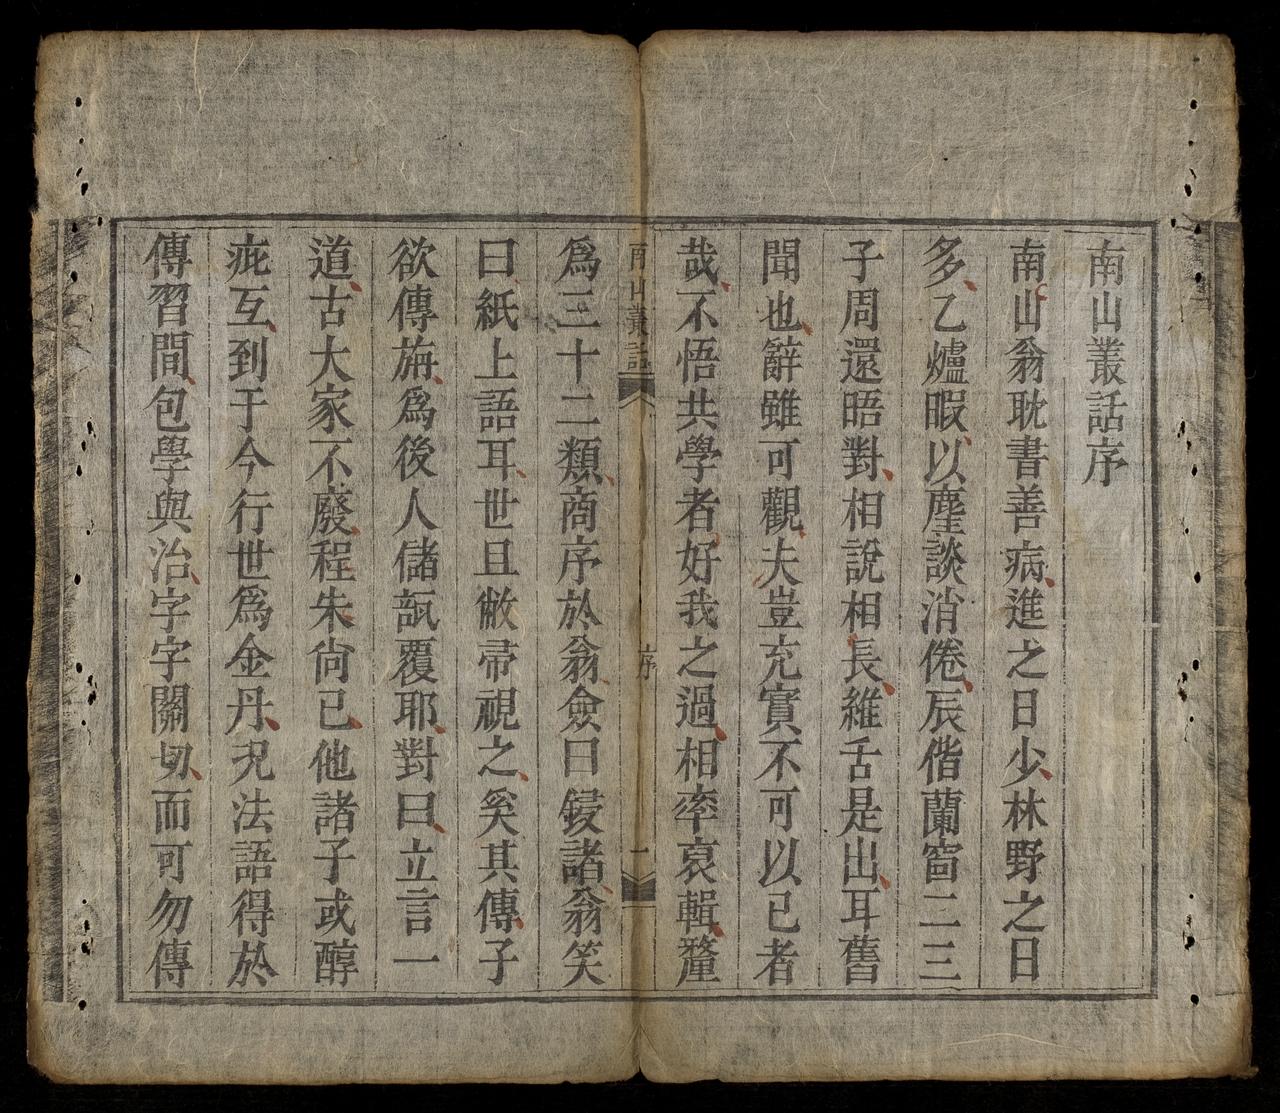 南山叢話序
南山翁耽書善病進之日少林野之日
多乙爐暇以麈談消倦辰偕蘭窗二三
子周還晤對相說相長維舌是出耳舊
聞也辭雖可觀夫豈充實不可以已者
哉不悟共學者好我之過相率裒輯釐
南山叢話
序
一
爲三十二類商序於翁僉曰鋟諸翁笑
曰紙上語耳世且敝帚視之奚其傳子
欲傳旃爲後人儲瓿覆耶對曰立言一
道古大家不廢程朱尙已他諸子或醇
疵互到于今行世爲金丹況法語得於
傳習間包學與治字字關切而可勿傳